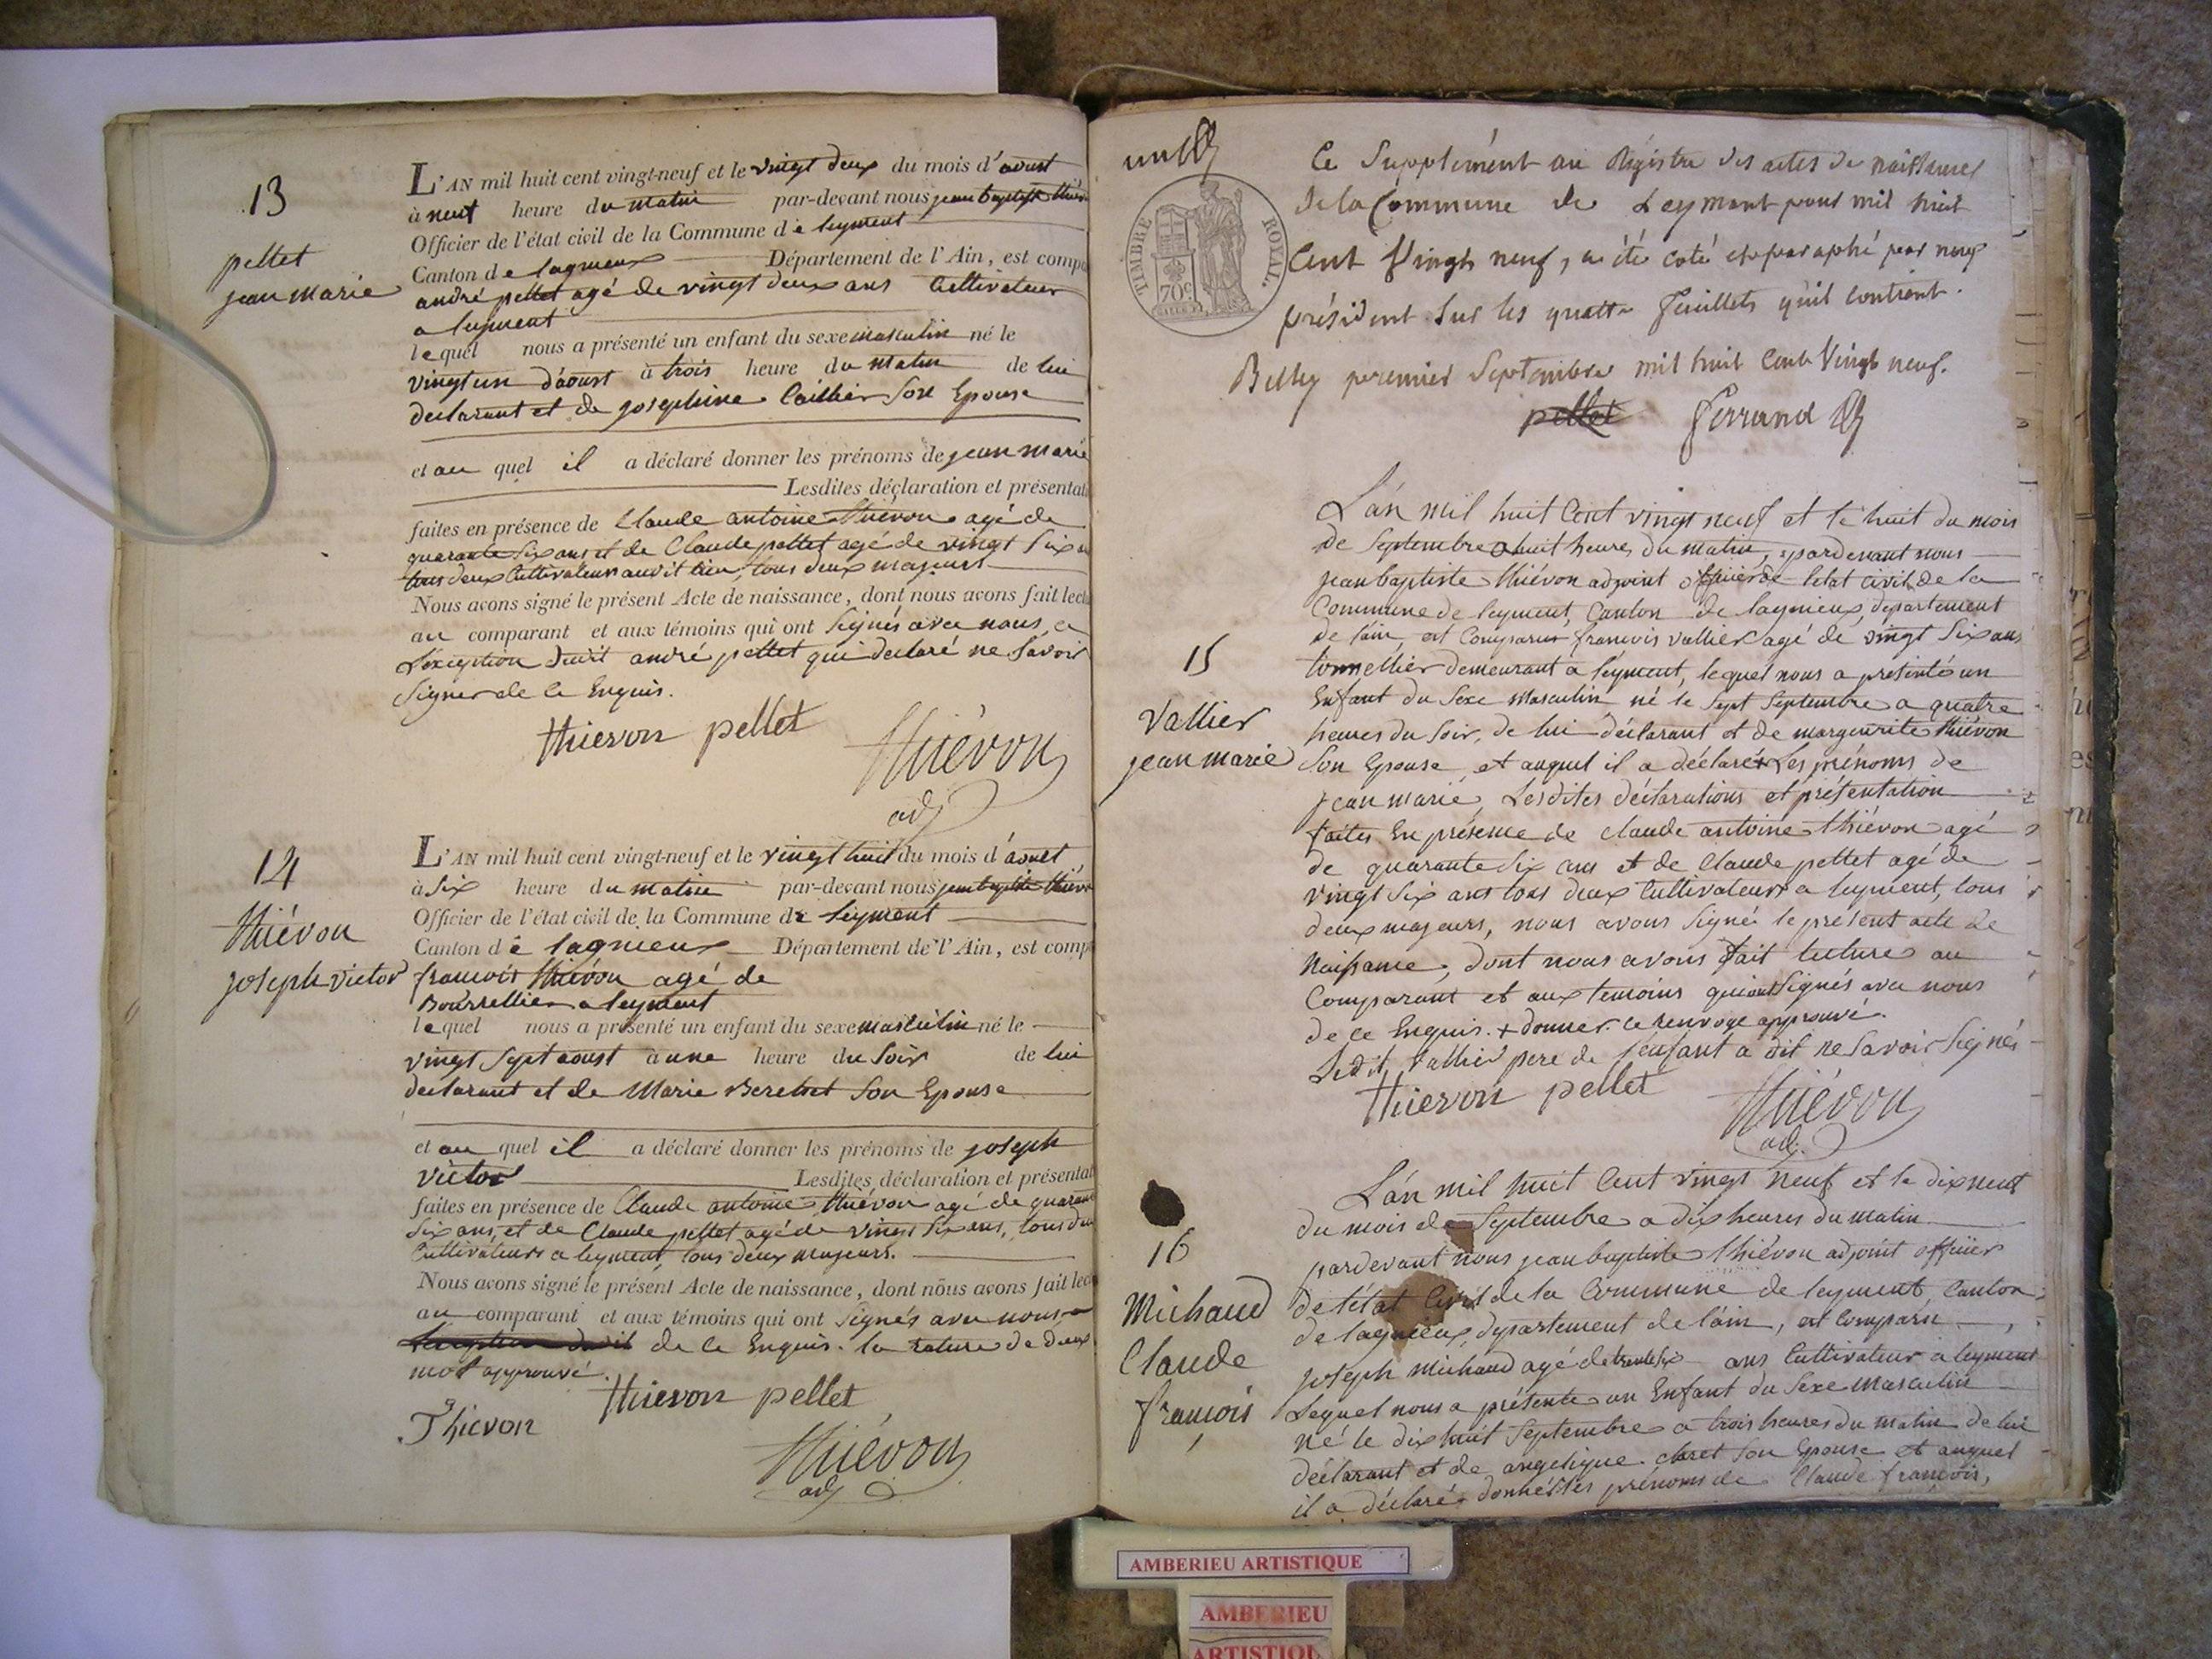 13
pellet
jean marie
L'AN mil huit cent vingt-neuf et le vingt deux du mois d'aoust
à neuf heure du matin par-devant nous jean baptiste thiév
Officier de l'état civil de la Commune de leyment
Canton de lagnieux Département de l'Ain, est compa
andré pellet agé de vingt deux ans Cultivateur
a leyment
lequel nous a présenté un enfant du sexe masculin né le
vingt un d'aoust à trois heure du matin de lui
declarant et de josephine Caillier Son Epouse
et au quel il a déclaré donner les prénoms de jean marie
Lesdites déclaration et présentati
faites en présence de Claude antoine thievon agé de
quarante Six ans et de Claude pellet agé de vingt Six
tous deux Cultivateurs audit lieu, tous deux majeurs
Nous avons signé le présent Acte de naissance, dont nous avons fait lectu
au comparant et aux témoins qui ont Signés avec nous, a
L'exception dudit andré pellet qui declaré ne Savoir
Signer de ce Enquis.
thievon pellet
Thiévon
adj
14
thiévon
joseph victor
L'AN mil huit cent vingt-neuf et le vingt huit du mois d'aoust
à Six heure du matin par-devant nous jean baptiste thiév
Officier de l'état civil de la Commune de leyment
Canton de lagnieux Département de l'Ain, est comp
francois thiévon agé de
Bourrellier a leyment
lequel nous a présenté un enfant du sexe masculin né le
vingt Sept aoust à une heure du Soir de lui
declarant et de Marie Son Epouse
et au quel il a déclaré donner les prénoms de joseph
victor Lesdites déclaration et présentat
faites en présence de Claude antoine thiévon agé de quarant
Six ans, et de Claude pellet agé de vingt Six ans, tous deu
Cultivateurs a leyment, tous deux majeurs.
Nous avons signé le présent Acte de naissance, dont nous avons fait lect
au comparant et aux témoins qui ont Signés avec nous a
L'exception dudit de ce Enquis. la rature de deux
mot approuvé.
Thievon thievon pellet
Thiévon
adj
un
TIMBRE ROYAL
70c
Ce Supplément au Régistre des actes de naissances
de la Commune de Leyment pour mil huit
Cent Vingt neuf, a été coté et paraphé par nous
président Sur les quatre feuillets qu'il contient.
Belley premier Septembre mil huit Cent Vingt neuf.
pellet Ferrand
15
Vallier
jean marie
L'an mil huit Cent vingt neuf et le huit du mois
de Septembre a huit heures du matin, pardevant nous
jean baptiste thiévon adjoint officier de l'etat civil de la
Commune de leyment, Canton de lagnieux, département
de l'ain, est Comparu francois vallier agé de vingt Six ans
tonnellier demeurant a leyment, lequel nous a presenté un
Enfant du Sexe Masculin né le Sept Septembre a quatre
heures du Soir, de lui déclarant et de marguerite thiévon
Son Epouse, et auquel il a déclaré + Les prénoms de
jean marie, Lesdites déclarations et présentation
faites En présence de claude antoine thiévon agé
de quarante Six ans et de Claude pellet agé de
vingt Six ans tous deux Cultivateurs a leyment, tous
deux majeurs, nous avons Signé le présent acte de
Naissance, dont nous avons fait lecture au
Comparant et aux temoins qui ont Signés avec nous
de ce Enquis. + donner. le renvoye approuvé.
Ledit Vallier pere de l'enfant a dit ne Savoir Signés
thievon pellet Thiévon
adj.
16
Michaud
Claude
françois
L'an mil huit Cent vingt neuf et le dix neuf
du mois de Septembre a dix heures du matin
pardevant nous jean baptiste thiévon adjoint officier
de l'état Civil de la Commune de leyment, Canton
de lagnieux, département de l'ain, est Comparu
joseph michaud agé de trente Six ans Cultivateur a leyment
Lequel nous a présenté un Enfant du Sexe Masculin
né le dix huit Septembre a trois heures du matin de lui
déclarant et de angelique claret Son Epouse et auquel
il a déclaré donner Les prénoms de Claude françois,
AMBERIEU ARTISTIQUE
AMBERIEU
ARTISTIQU